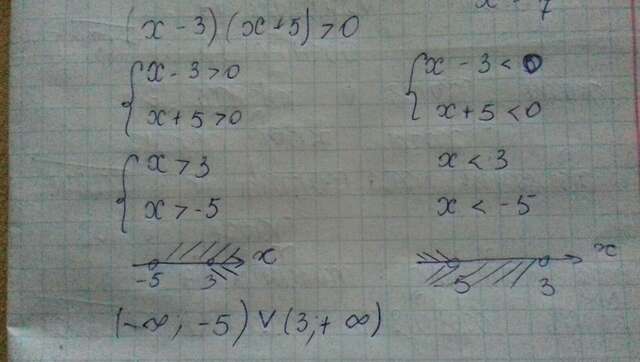 x - 7
(x - 3)(x + 5) > 0
{ x - 3 > 0
x + 5 > 0
{ x - 3 < 0
x + 5 < 0
{ x > 3
x > -5
x < 3
x < -5
-5 3 x
5 3 x
(-∞; -5) ∨ (3; +∞)